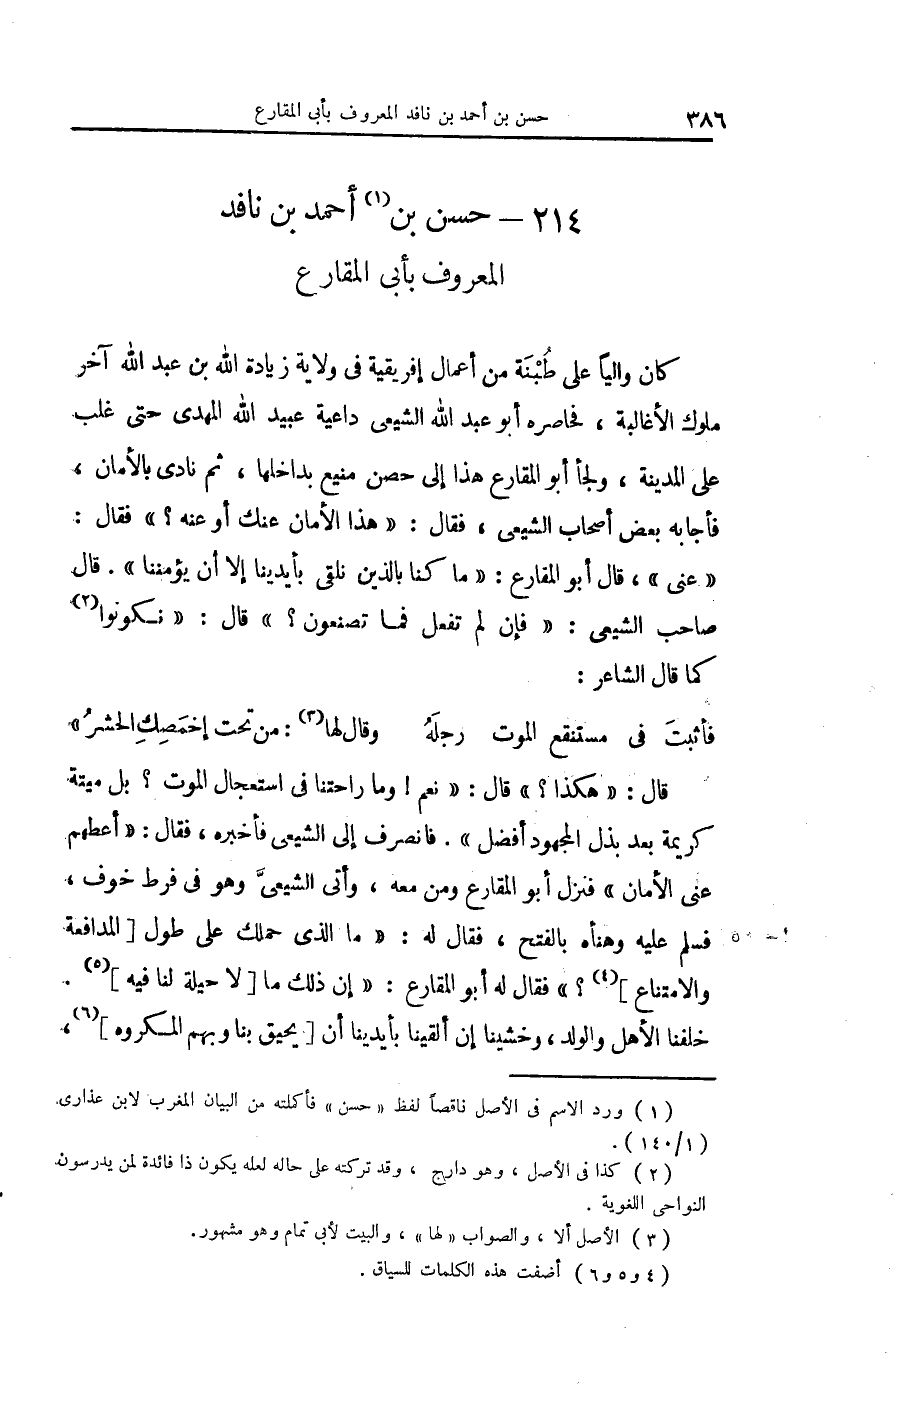 ٣٨٦ حسن بن أحمد بن نافد المعروف بأبى المقارع
٢١٤ — حسن بن (١) أحمد بن نافد
المعروف بأبى المقارع
كان والياً على طُبْنَة من أعمال إفريقية فى ولاية زيادة الله بن عبد الله آخر
ملوك الأغالبة ، فحاصره أبو عبد الله الشيعى داعية عبيد الله المهدى حتى غلب
على المدينة ، ولجأ أبو المقارع هذا إلى حصن منيع بداخلها ، ثم نادى بالأمان ،
فأجابه بعض أصحاب الشيعى ، فقال : « هذا الأمان عنك أو عنه ؟ » فقال :
« عنى » ، قال أبو المقارع : « ما كنا بالذين نلقى بأيدينا إلا أن يؤمننا » . قال
صاحب الشيعى : « فإن لم تفعل فما تصنعون ؟ » قال : « نكونوا (٢)
كما قال الشاعر :
فأثبتَ فى مستنقع الموت رجلَهُ وقال لها (٣) : من تحت إخمَصِكِ الحشرُ »
قال : « هكذا ؟ » قال : « نعم ! وما راحتنا فى استعجال الموت ؟ بل ميتة
كريمة بعد بذل المجهود أفضل » . فانصرف إلى الشيعى فأخبره ، فقال : « أعطهم
عنى الأمان » فنزل أبو المقارع ومن معه ، وأتى الشيعىَّ وهو فى فرط خوف ،
فسلم عليه وهنأه بالفتح ، فقال له : « ما الذى حملك على طول [ المدافعة ٥٠ — أ
والامتناع ] (٤) ؟ » فقال له أبو المقارع : « إن ذلك ما [ لا حيلة لنا فيه ] (٥) .
خلفنا الأهل والولد ، وخشينا إن ألقينا بأيدينا أن [ يحيق بنا وبهم المكروه ] (٦) ،
( ١ ) ورد الاسم فى الأصل ناقصاً لفظ « حسن » فأكملته من البيان المغرب لابن عذارى
( ١ / ١٤٠ ) .
( ٢ ) كذا فى الأصل ، وهو دارج ، وقد تركته على حاله لعله يكون ذا فائدة لمن يدرسون
النواحى اللغوية .
( ٣ ) الأصل ألا ، والصواب « لها » ، والبيت لأبى تمام وهو مشهور .
( ٤ و ٥ و ٦ ) أضفت هذه الكلمات للسياق .